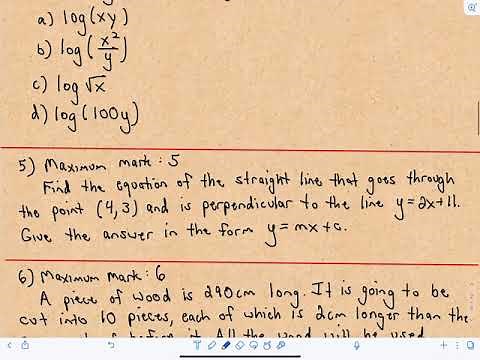 a) log(xy)
b) log(x²/y)
c) log√x
d) log(100y)
5) Maximum mark: 5
Find the equation of the straight line that goes through
the point (4,3) and is perpendicular to the line y=2x+11.
Give the answer in the form y=mx+c.
6) Maximum mark: 6
A piece of wood is 290cm long. It is going to be
cut into 10 pieces, each of which is 2cm longer than the
before it. All the wood will be used